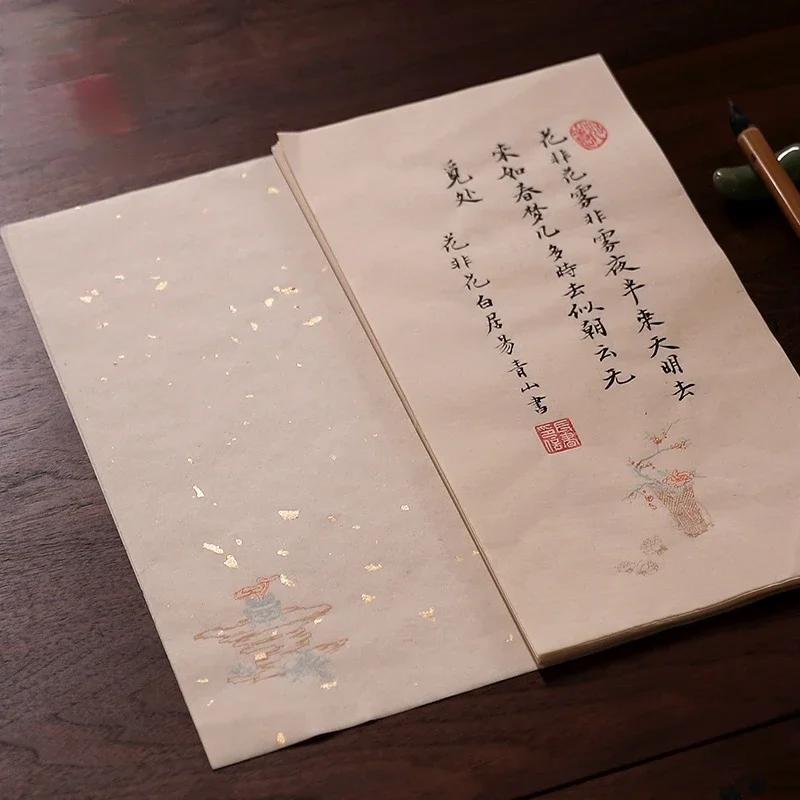 花非花雾非雾夜半来天明去
来如春梦几多時去似朝云无
觅处
花非花白居易青山書